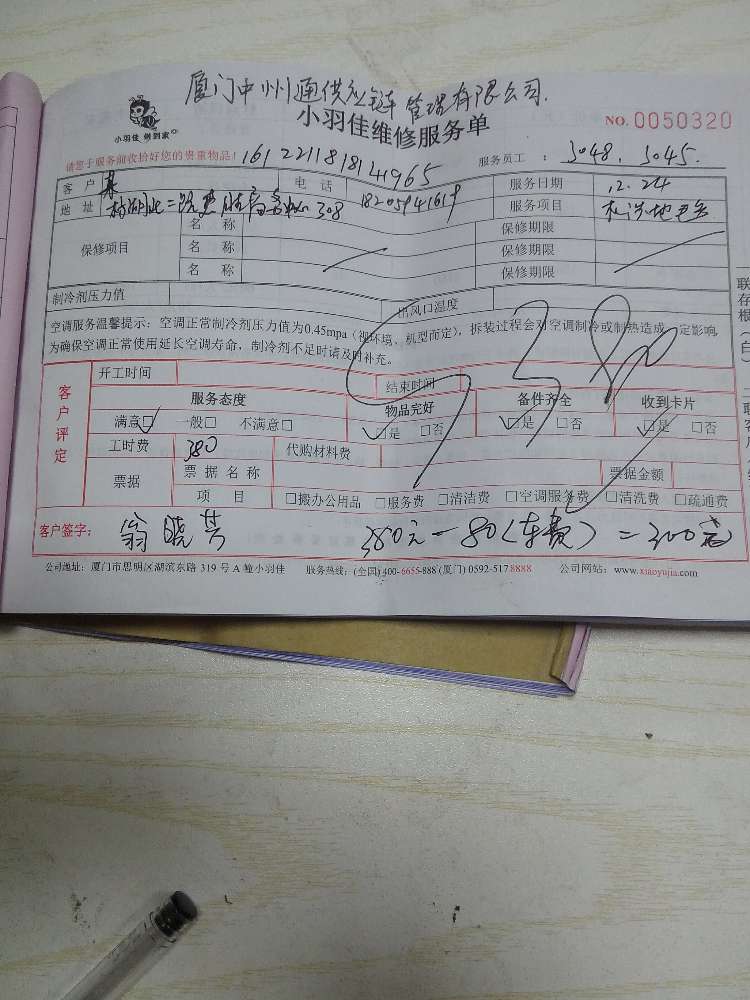 厦门中州通供应链管理有限公司.
小羽佳 俐到家
小羽佳维修服务单
NO. 0050320
请您于服务前收拾好您的贵重物品! 1612211818141965 服务员工 : 3048. 3045.
客户 电话 服务日期 12.24
地址 308 18205941619 服务项目
保修项目 名称 保修期限
名称 保修期限
名称 保修期限
制冷剂压力值 出风口温度
空调服务温馨提示: 空调正常制冷剂压力值为0.45mpa (视环境、机型而定), 拆装过程会对空调制冷或制热造成一定影响,
为确保空调正常使用延长空调寿命, 制冷剂不足时请及时补充。
5380
客户评定
开工时间 结束时间
服务态度 物品完好 备件齐全 收到卡片
满意☑ 一般□ 不满意□ ☑是 □否 ☑是 □否 ☑是 □否
工时费 380 代购材料费
票据 票据名称 票据金额
项目 □搬办公用品 □服务费 □清洁费 □空调服务费 □清洗费 □疏通费
客户签字: 翁晓芳 380元-80(车费)=300
公司地址: 厦门市思明区湖滨东路 319 号 A 幢小羽佳 服务热线: (全国) 400-6655-888 (厦门) 0592-5178888 公司网站: www.xiaoyujia.com